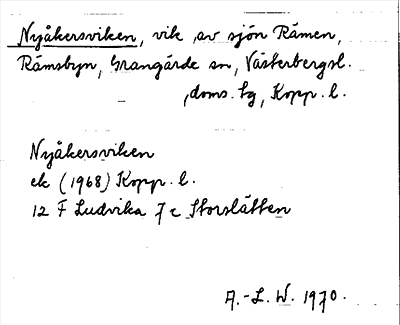 Nyåkersviken, vik av sjön Rämen,
Rämsbyn, Grangärde sn, Västerbergsl.
doms. tg, Kopp. l.
Nyåkersviken
ek (1968) Kopp. l.
12 F Ludvika 7c Storslätten
A.-L. W. 1970.